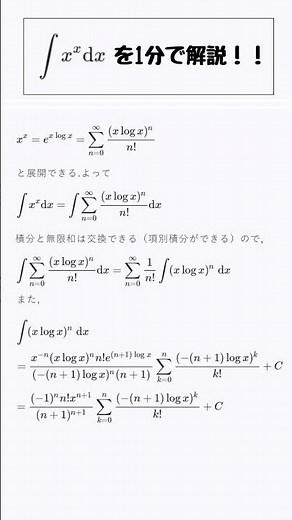 ∫ x^x dx を1分で解説！！
x^x = e^{x log x} = ∑_{n=0}^{∞} (x log x)^n / n!
と展開できる.よって
∫ x^x dx = ∫ ∑_{n=0}^{∞} (x log x)^n / n! dx
積分と無限和は交換できる（項別積分ができる）ので,
∫ ∑_{n=0}^{∞} (x log x)^n / n! dx = ∑_{n=0}^{∞} 1/n! ∫ (x log x)^n dx
また,
∫ (x log x)^n dx
= x^{-n}(x log x)^n n! e^{(n+1) log x} / (-(n+1) log x)^n (n+1) ∑_{k=0}^{n} (-(n+1) log x)^k / k! + C
= (-1)^n n! x^{n+1} / (n+1)^{n+1} ∑_{k=0}^{n} (-(n+1) log x)^k / k! + C